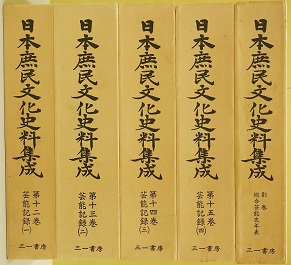 日本庶民文化史料集成
第十二巻
芸能記録(一)
三一書房
日本庶民文化史料集成
第十三巻
芸能記録(二)
三一書房
日本庶民文化史料集成
第十四巻
芸能記録(三)
三一書房
日本庶民文化史料集成
第十五巻
芸能記録(四)
三一書房
日本庶民文化史料集成
別巻
総合芸能史年表
三一書房